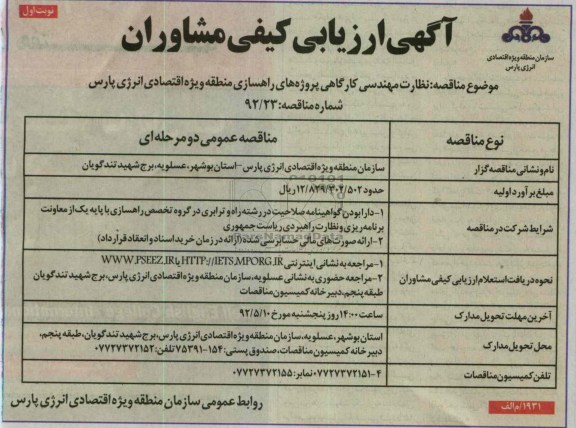 نوبت اول
سازمان منطقه ویژه اقتصادی
انرژی پارس
آگهی ارزیابی کیفی مشاوران
موضوع مناقصه: نظارت مهندسی کارگاهی پروژه‌های راهسازی منطقه ویژه اقتصادی انرژی پارس
شماره مناقصه: ۹۲/۲۳
نوع مناقصه
مناقصه عمومی دو مرحله‌ای
نام و نشانی مناقصه‌گزار
سازمان منطقه ویژه اقتصادی انرژی پارس-استان بوشهر، عسلویه، برج شهید تندگویان
مبلغ برآورد اولیه
حدود ۱۲/۸۲۹/۳۰۴/۵۰۲ ریال
شرایط شرکت در مناقصه
۱-دارا بودن گواهینامه صلاحیت در رشته راه و ترابری در گروه تخصص راهسازی با پایه یک از معاونت
برنامه‌ریزی و نظارت راهبردی ریاست جمهوری
۲-ارائه صورت‌های مالی حسابرسی شده (ارائه در زمان خرید اسناد و انعقاد قرارداد)
نحوه دریافت استعلام ارزیابی کیفی مشاوران
۱-مراجعه به نشانی اینترنتی HTTP://IETS.MPORG.IR یا WWW.PSEEZ.IR
۲-مراجعه حضوری به نشانی عسلویه، سازمان منطقه ویژه اقتصادی انرژی پارس، برج شهید تندگویان
طبقه پنجم، دبیرخانه کمیسیون مناقصات
آخرین مهلت تحویل مدارک
ساعت ۱۴:۰۰ روز پنجشنبه مورخ ۹۲/۵/۱۰
محل تحویل مدارک
استان بوشهر، عسلویه، سازمان منطقه ویژه اقتصادی انرژی پارس، برج شهید تندگویان، طبقه پنجم،
دبیرخانه کمیسیون مناقصات، صندوق پستی: ۱۵۴-۷۵۳۹۱ تلفن: ۰۷۷۲۷۳۷۲۱۵۲
تلفن کمیسیون مناقصات
۴-۰۷۷۲۷۳۷۲۱۵۱ نمابر: ۰۷۷۲۷۳۷۲۱۵۵
روابط عمومی سازمان منطقه ویژه اقتصادی انرژی پارس
۱۹۳۱/م الف